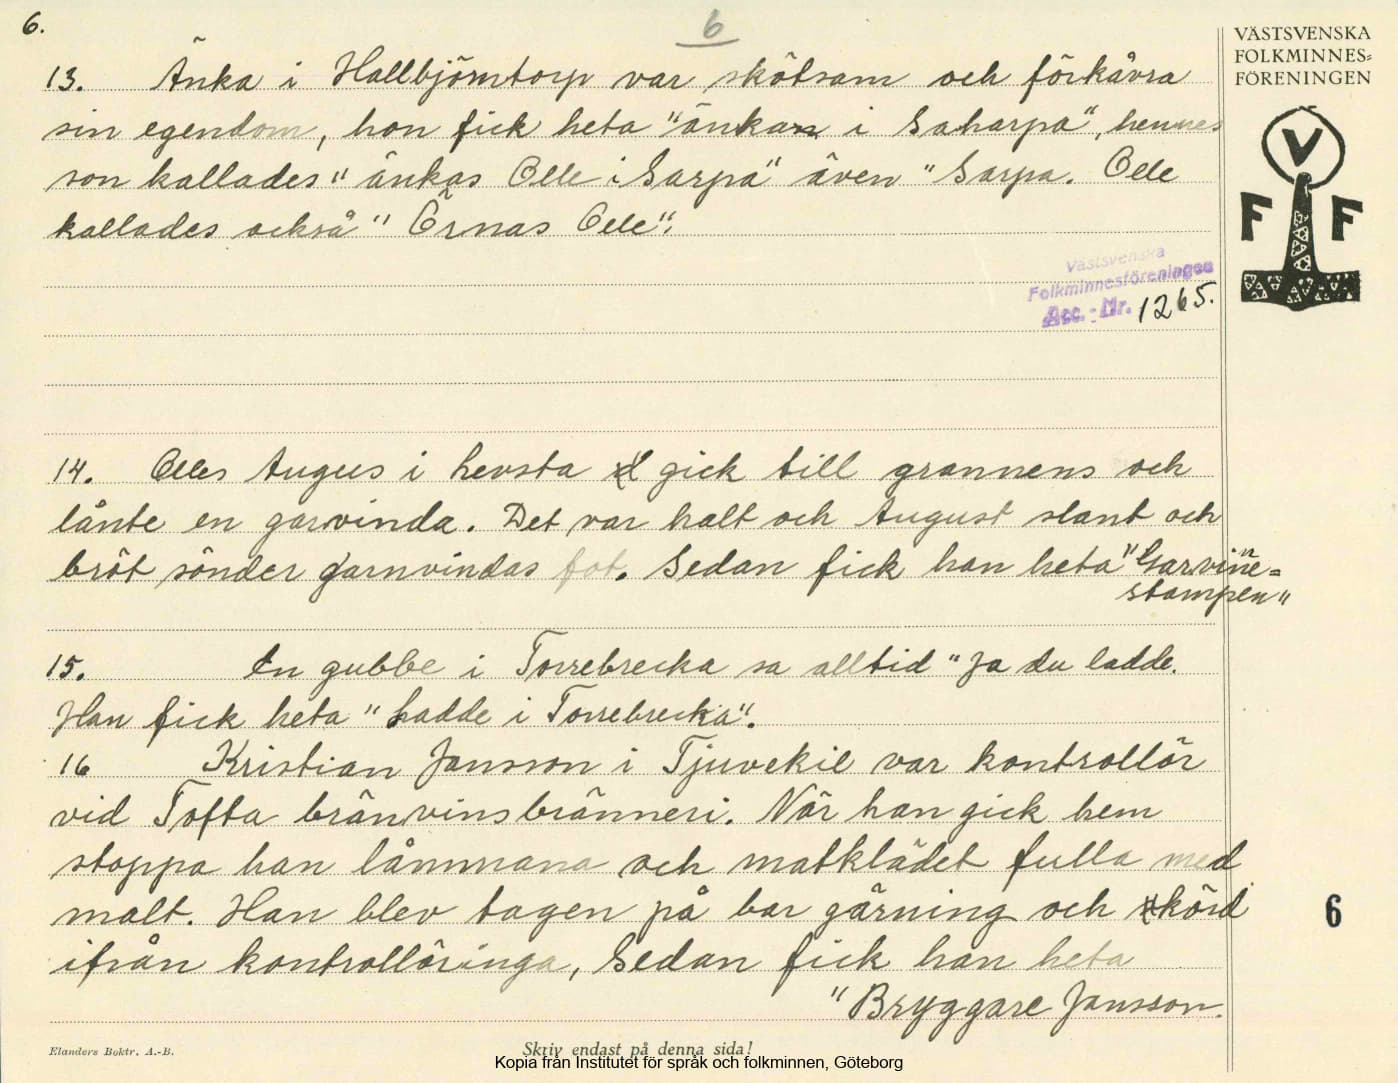 6.
6
VÄSTSVENSKA
FOLKMINNES=
FÖRENINGEN
V
F F
13. Änka i Hallbjörntorp var skötsam och förkåvra
sin egendom, hon fick heta "änkan i Saharpa", hennes
son kallades "änkas Olle i Sarpa" även "Sarpa. Olle
kallades också "Örnas Olle".
Västsvenska
Folkminnesföreningen
Acc. - Nr. 1265.
14. Olles Augus i hevsta gick till grannens och
lånte en garvinda. Det var halt och August slant och
bröt sönder garnvindas fot. Sedan fick han heta "Garvine=
stampen"
15. En gubbe i Torrebrecka sa alltid "Ja du ladde.
Han fick heta "Ladde i Torrebrecka".
16 Kristian Jansson i Tjuvekil var kontrollör
vid Tofta bränvinsbränneri. När han gick hem
stoppa han låmmana och matklädet fulla med
malt. Han blev tagen på bar gärning och körd
ifrån kontrolläringa, Sedan fick han heta
"Bryggare Jansson.
6
Elanders Boktr. A.-B.
Skriv endast på denna sida!
Kopia från Institutet för språk och folkminnen, Göteborg